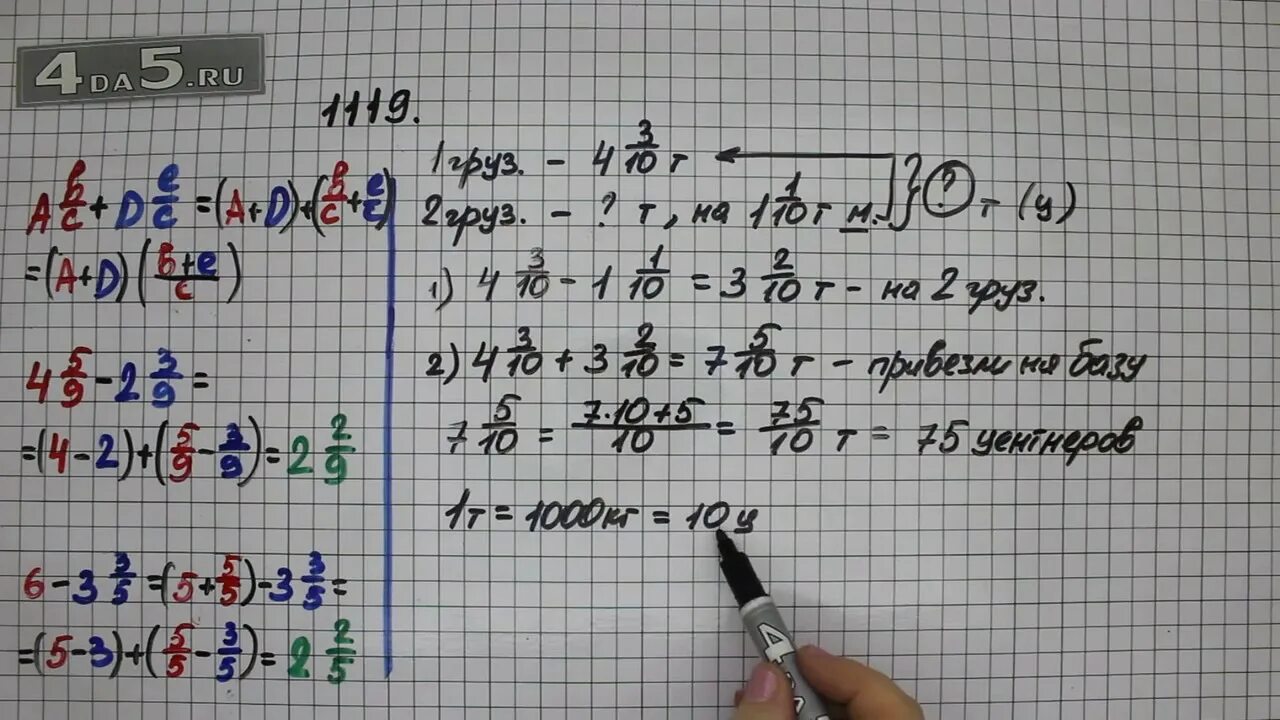 4DA5.RU
1119.
A b/c + D e/c = (A+D)+(b/c+e/c)
=(A+D)(b+e/c)
4 5/9 - 2 3/9 =
=(4-2)+(5/9-3/9)=2 2/9
6-3 3/5=(5+5/5)-3 3/5=
=(5-3)+(5/5-3/5)=2 2/5
1 груз. - 4 3/10 т
2 груз. - ? т, на 1 1/10 т м. } ? т (ц)
1) 4 3/10 - 1 1/10 = 3 2/10 т - на 2 груз.
2) 4 3/10 + 3 2/10 = 7 5/10 т - привезли на базу
7 5/10 = 7·10+5/10 = 75/10 т = 75 центнеров
1т = 1000кг = 10ц